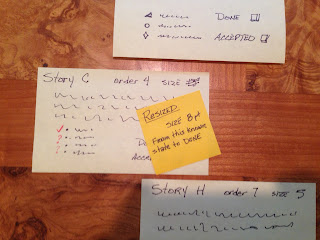 DONE
ACCEPTED
Story C order 4 SIZE
RESIZED
SIZE 8 pt
From this known
state to DONE
Story H order 7 SIZE 5